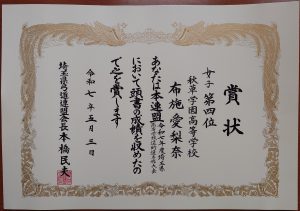 賞状
女子 第四位
秋草学園高等学校
布施 愛梨奈
あなたは本連盟
令和七年度埼玉県
において頭書の成績を収めたの
でこれを賞します
令和七年五月三日
埼玉県弓道連盟会長 本橋民夫